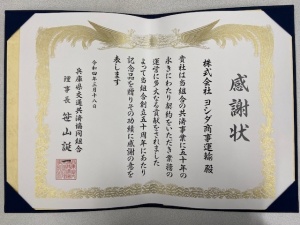 感謝状
株式会社 ヨシダ商事運輸 殿
貴社は当組合の共済事業に五十年の
永きにわたり契約をいただき業務の
運営に多大なる貢献をされました
よって当組合創立五十周年にあたり
記念品を贈りその功績に感謝の意を
表します
令和四年三月十八日
兵庫県交通共済協同組合
理事長 笹山誕